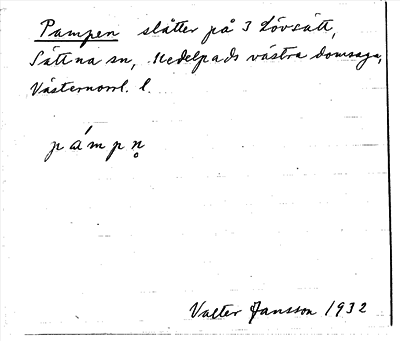 Pampen slåtter på 3 Lövsätt,
Sättna sn, Medelpads västra domsaga,
Västernorrl. l.
pámpn̥
Valter Jansson 1932